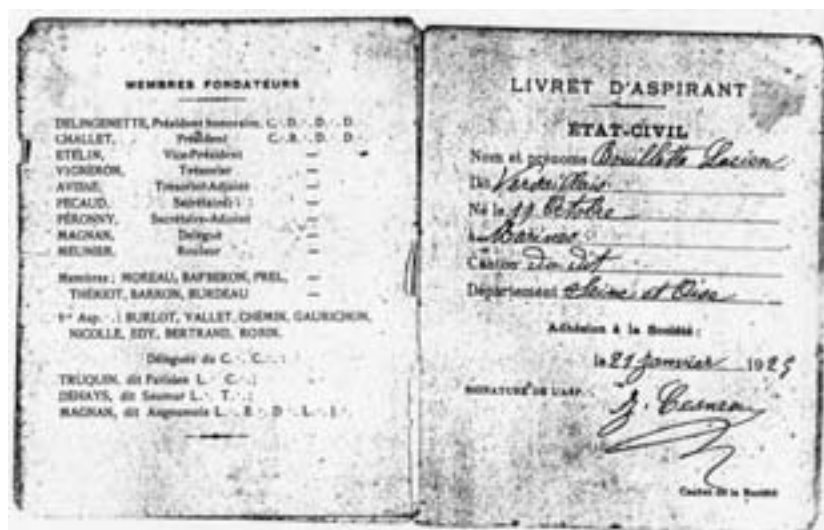 MEMBRES FONDATEURS
DELINGENETTE, Président honoraire, C. D. D. D.
CHALLET, Président C. R. D. D.
ETELIN, Vice-Président —
VIGNERON, Trésorier —
AVISSE, Trésorier-Adjoint —
PECAUD, Secrétaire —
PÉRONNY, Secrétaire-Adjoint —
MAGNAN, Délégué —
MEUNIER, Rouleur —
Membres : MOREAU, BARBERON, PREL, —
THÉRIOT, BARRON, BURDEAU —
Asp. : BURLOT, VALLET, CHEMIN, GAURICHON,
NICOLLE, EDY, BERTRAND, ROBIN.
Délégués du C. C. :
TRUQUIN, dit Parisien L. C. :
DEHAYS, dit Saumur L. T. :
MAGNAN, dit Angoumois L. R. D. L.
LIVRET D'ASPIRANT
ÉTAT-CIVIL
Nom et prénoms Bouillette Lucien
Dit Versaillais
Né le 11 Octobre
à Marines
Canton du dit
Département Seine et Oise
Adhésion à la Société :
le 21 janvier 1925
SIGNATURE DE L'ASP.
Cachet de la Société